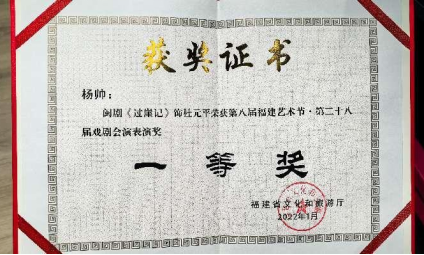 获奖证书
杨帅：
闽剧《过崖记》饰杜元平荣获第八届福建艺术节·第二十八
届戏剧会演表演奖
一等奖
福建省文化和旅游厅
2022年1月